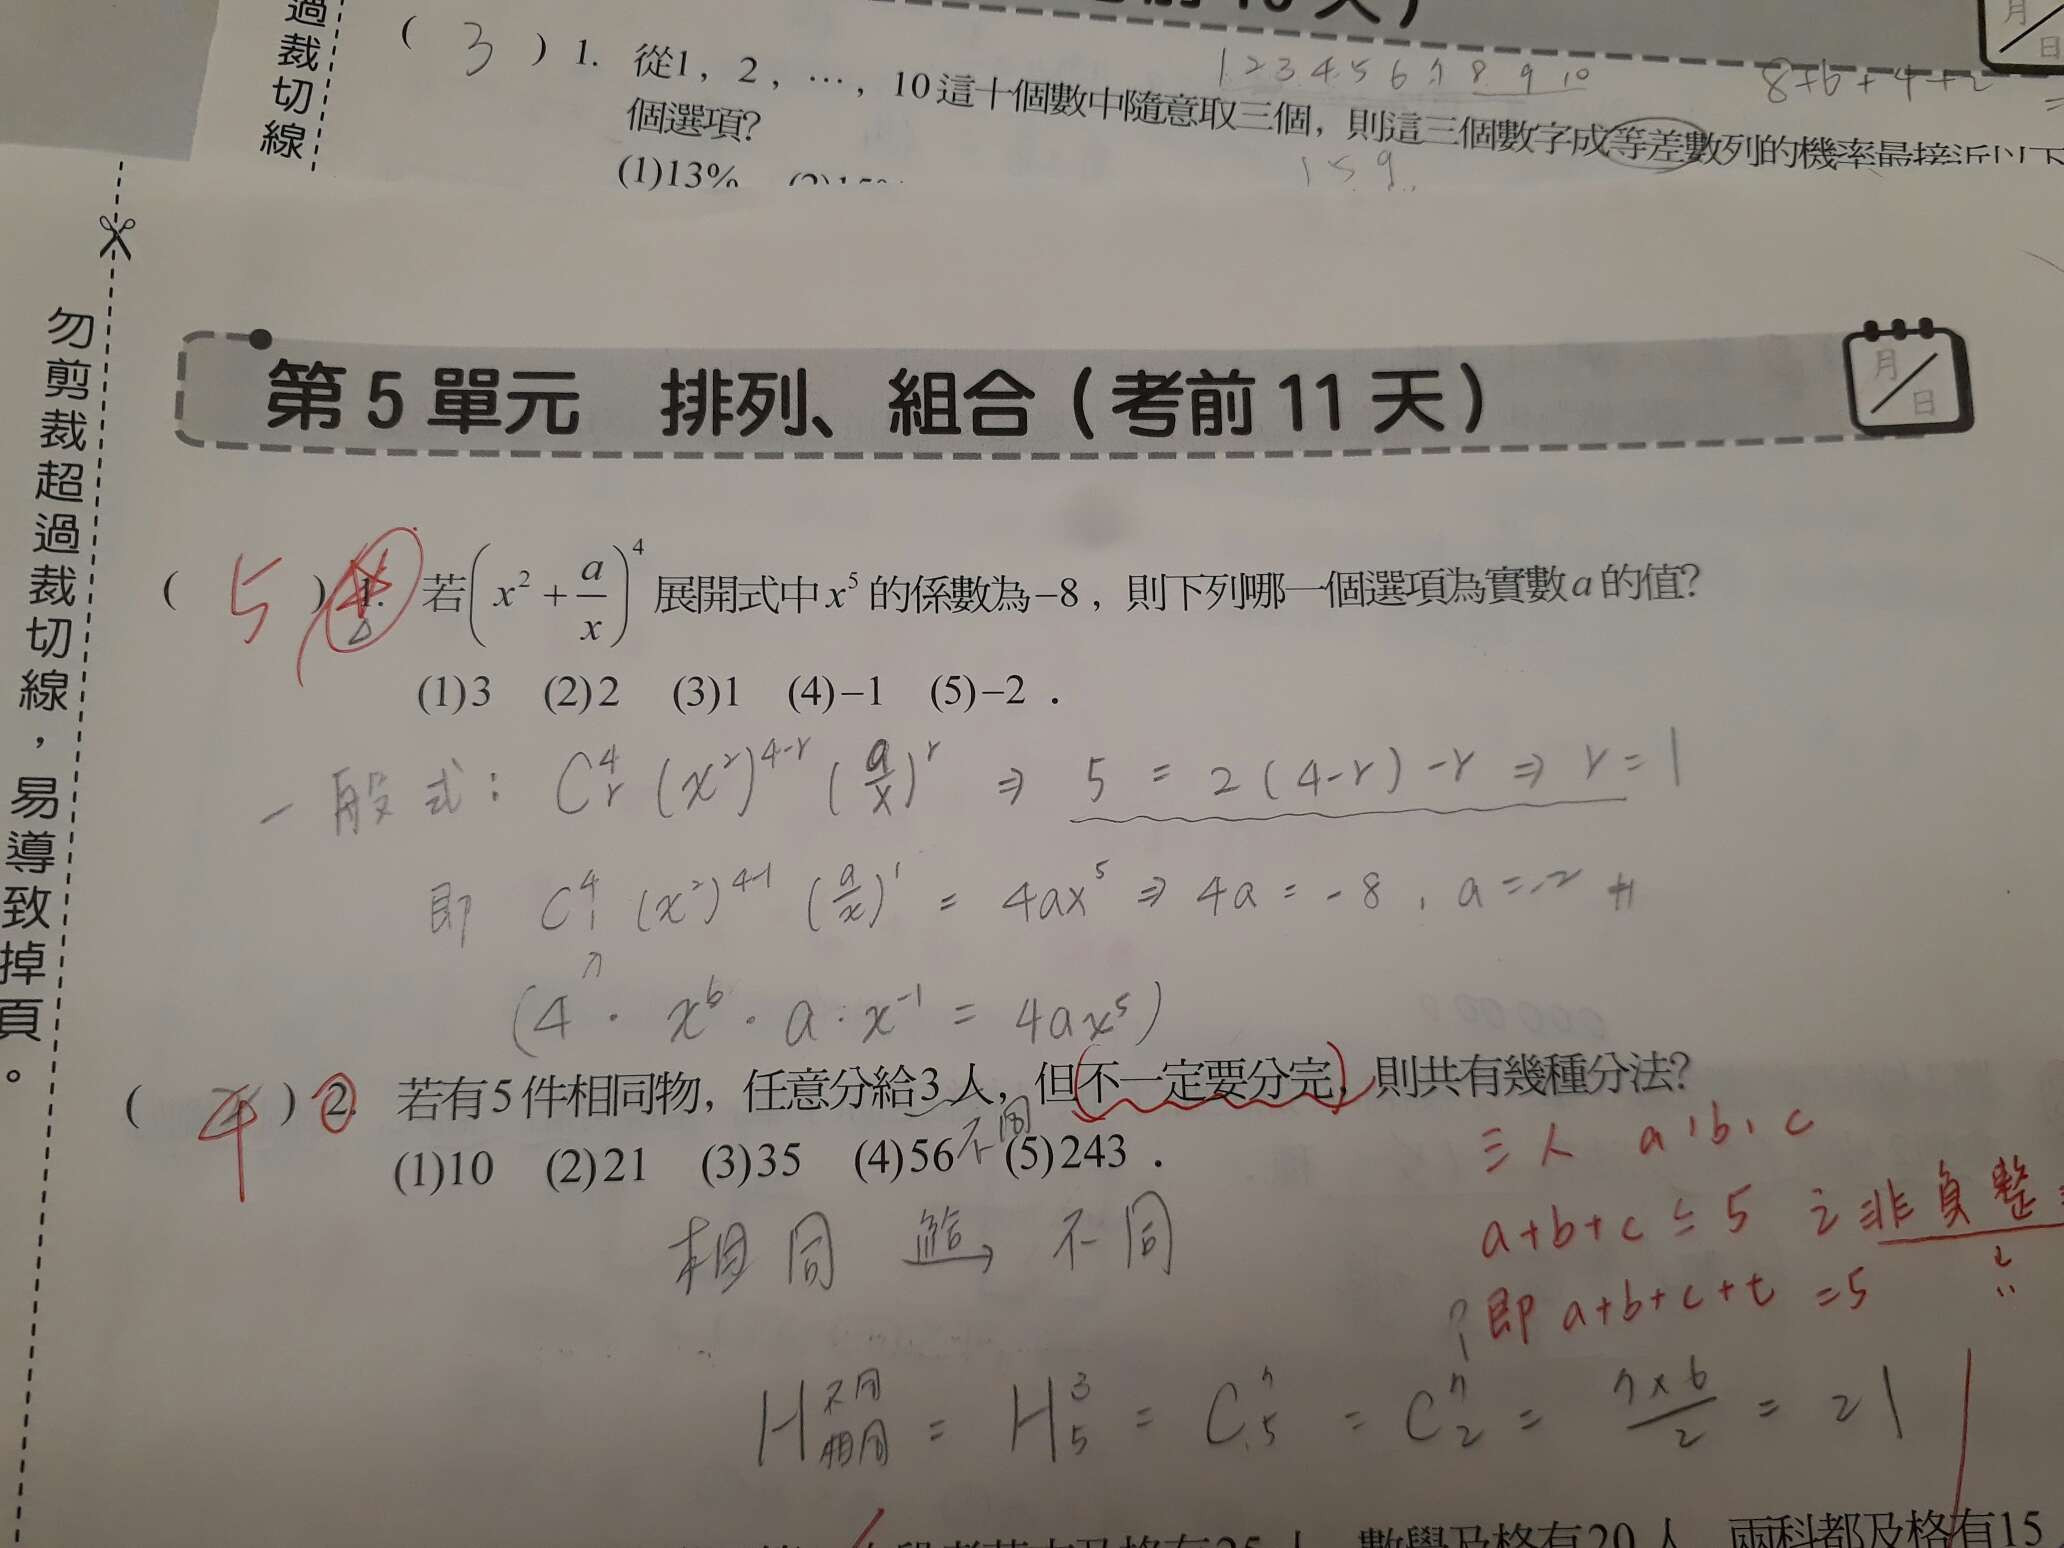 過裁切線
( 3 ) 1. 從1，2，…，10這十個數中隨意取三個，則這三個數字成等差數列的機率最接近以下
1 2 3 4 5 6 7 8 9 10
8+6+4+2
個選項?
1 5 9
(1)13%
月
日
勿剪裁超過裁切線，易導致掉頁。
第 5 單元 排列、組合 ( 考前 11 天 )
月
日
( 5 ) 1. 若(x² + a/x)⁴ 展開式中 x⁵ 的係數為−8，則下列哪一個選項為實數a的值?
(1)3 (2)2 (3)1 (4)−1 (5)−2．
一般式： C⁴ᵣ (x²)⁴⁻ʳ (a/x)ʳ ⇒ 5 = 2(4-r)-r ⇒ r=1
即 C⁴₁ (x²)⁴⁻¹ (a/x)¹ = 4ax⁵ ⇒ 4a = -8 , a=-2 #
(4 · x⁶ · a · x⁻¹ = 4ax⁵)
( 4 ) 2. 若有5件相同物，任意分給3人，但不一定要分完，則共有幾種分法?
不同
(1)10 (2)21 (3)35 (4)56 (5)243．
三人 a,b,c
相同 給→ 不同
a+b+c ≤ 5 之非負整
即 a+b+c+t =5
H不同相同 = H³₅ = C⁷₅ = C⁷₂ = 7×6/2 = 21
數學及格有20人，兩科都及格有15